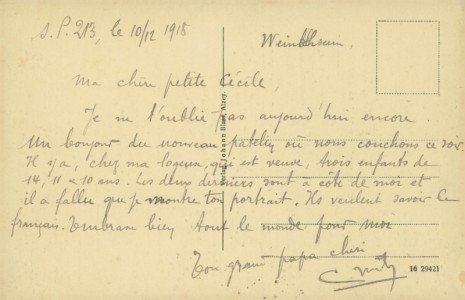 S.P. 213, le 10/12 1918
Weinolsheim,
Ma chère petite Cécile,
Je ne t'oublie pas aujourd'hui encore.
Un bonjour du nouveau patelin où nous couchons ce soir.
Il y a, chez ma logeuse, qui est veuve, trois enfants de
14, 11 et 10 ans. Les deux derniers sont à côté de moi et
il a fallu que je montre ton portrait. Ils veulent savoir le
français. Embrasse bien tout le monde pour moi
Ton grand papa chéri
Verlag Johann Blum, Alzey.
16 29421